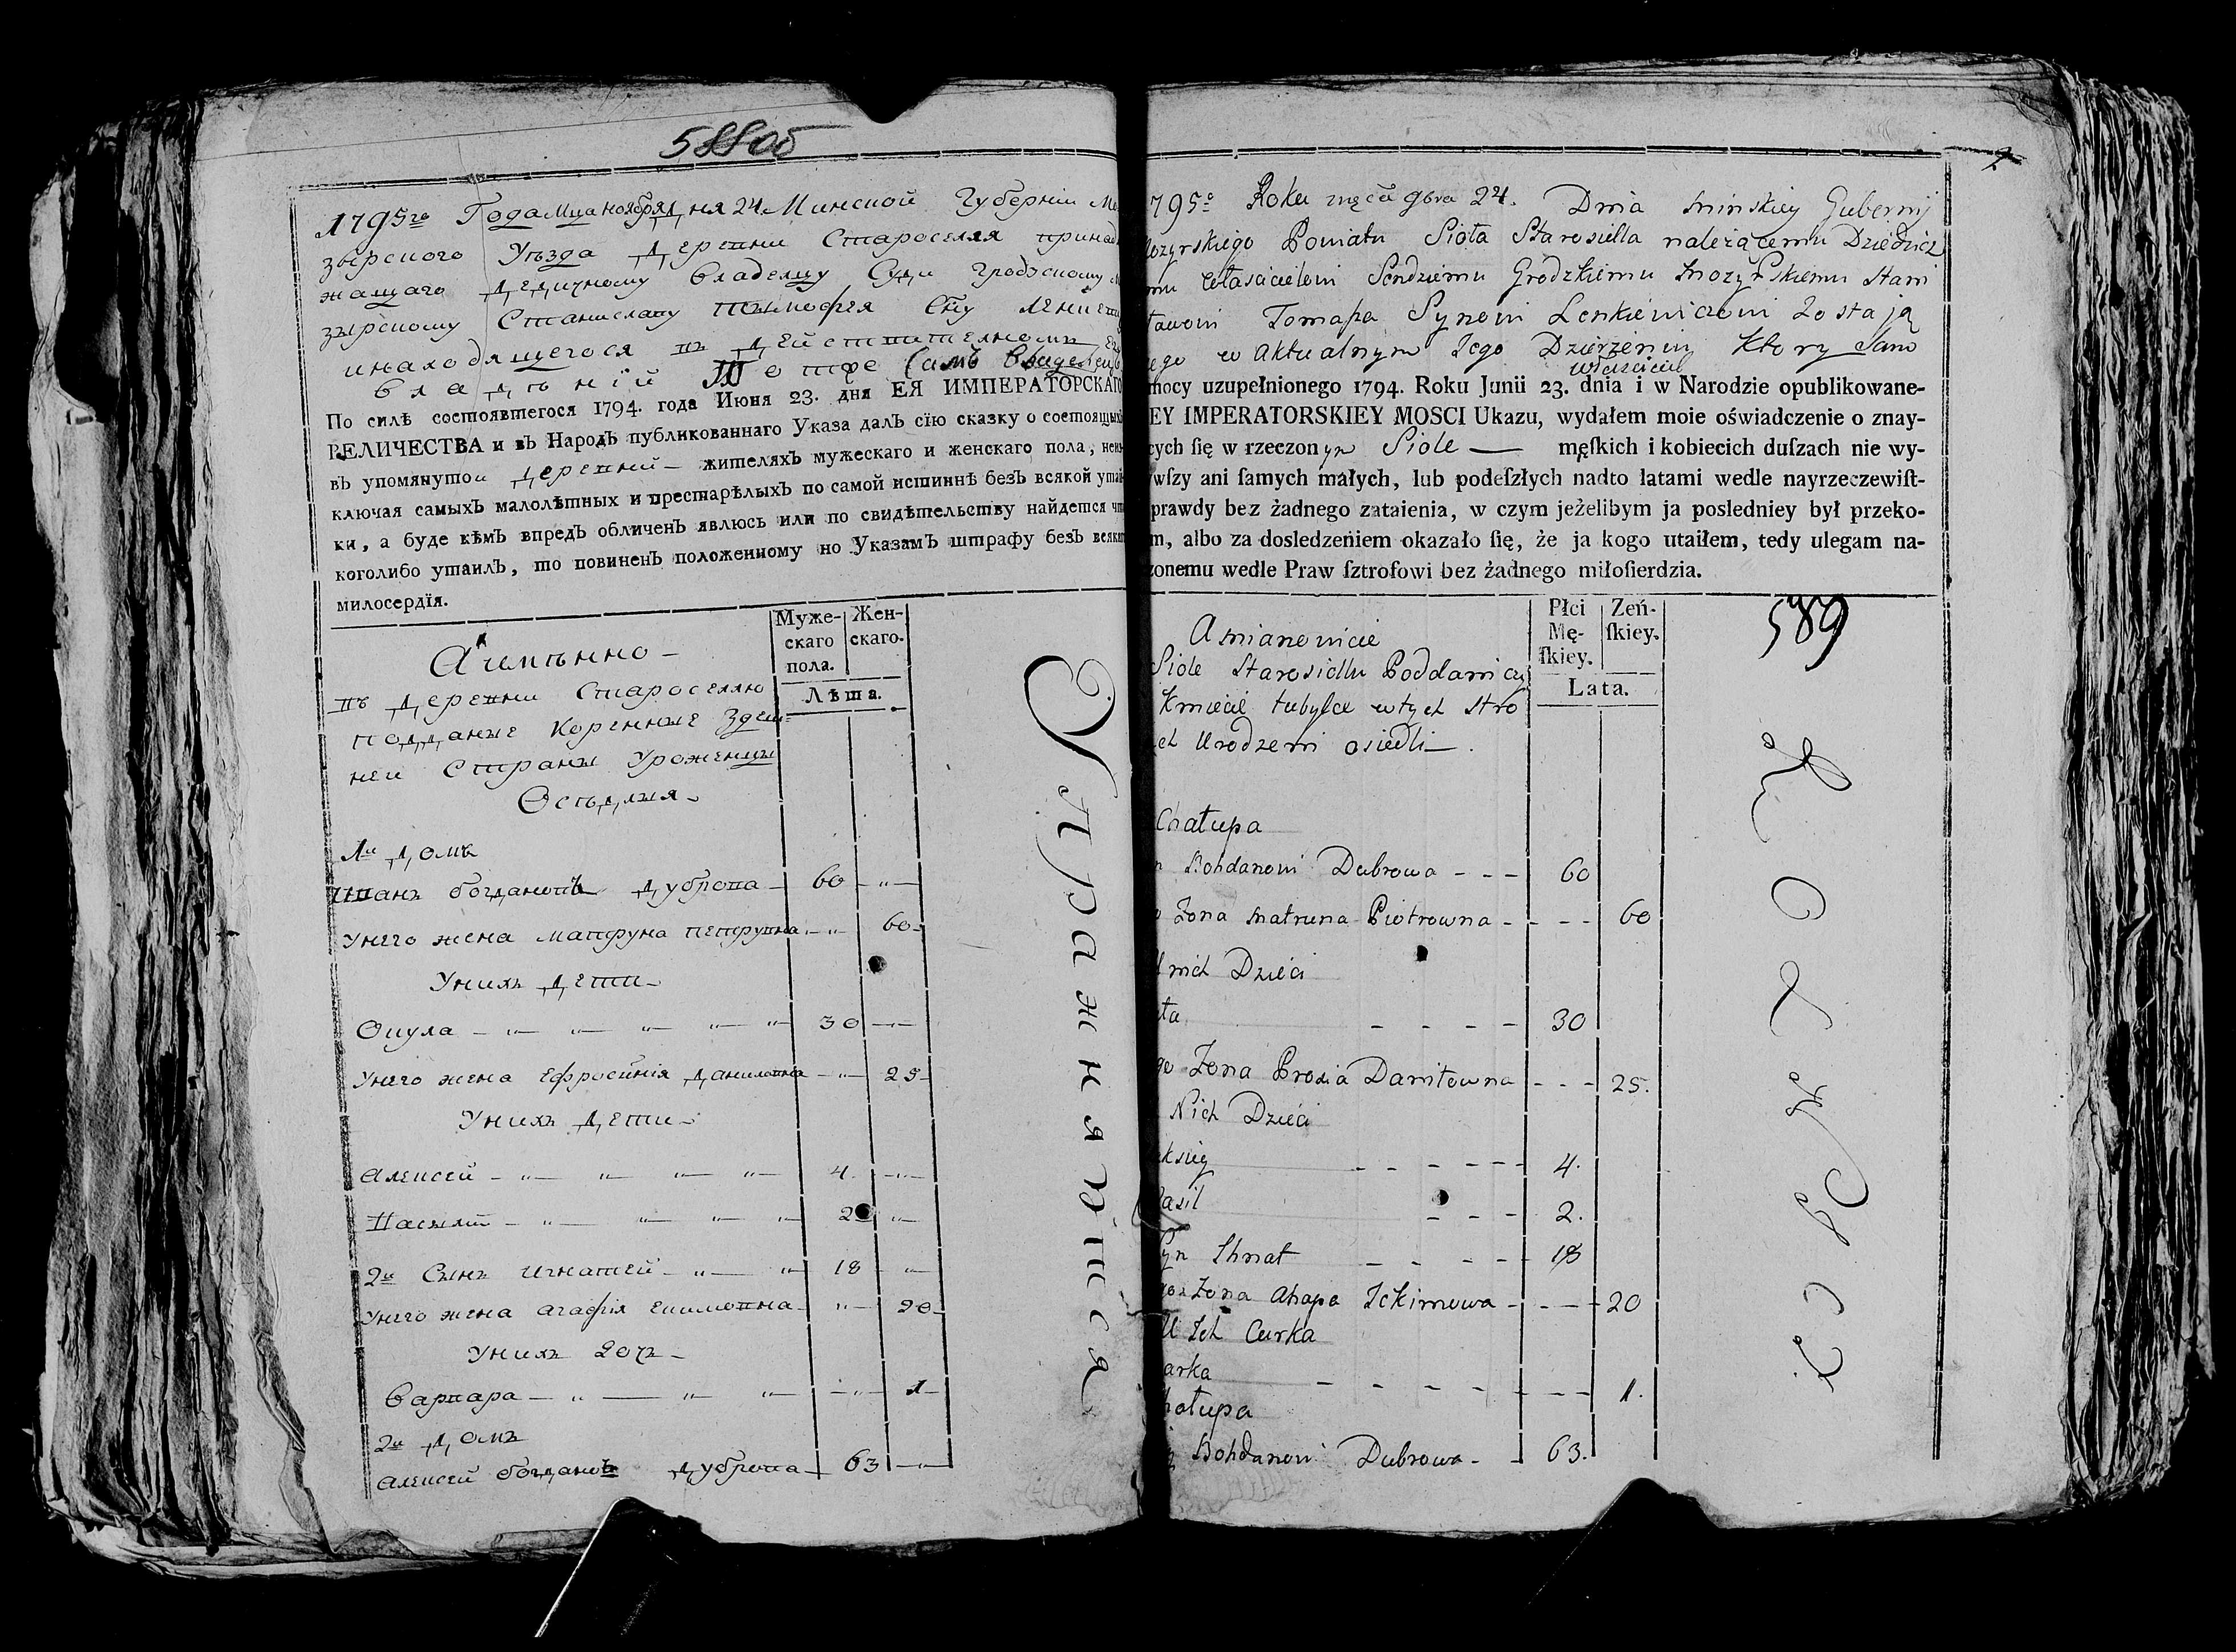 588об
1795го Года Мца ноября Дня 24. Минской Губернiи Мо
зырского Уѣзда Деревни Староселля принад
жащаго Дедичному владелцу Суди Гродскому М
зырскому Станиславу Тимофея Сну Ленкеви
инаходящегося въ Действителномъ Ег
владѣнiи которое Самъ владелецъ
По силѣ состоявшегося 1794. года Июня 23. дня ЕЯ ИМПЕРАТОРСКАГО
ВЕЛИЧЕСТВА и вЪ НародЪ публикованнаго Указа далЪ сїю сказку о состоящихъ
вЪ упомянутои деревни — жителяхЪ мужескаго и женскаго пола, неиз
ключая самыхЪ малолѣтных и престарѣлыхЪ по самой истиннѣ безЪ всякой утай
ки, а буде кѣмЪ впредЪ обличенЪ явлюсь или по свидѣтельству найдется что
коголибо утаилЪ, то повиненЪ положенному по УказамЪ штрафу безЪ всякаго
милосердїя.
Муже- Жен-
скаго скаго.
пола.
Лѣта.
А имѣнно —
въ деревни Староселлю
подданые коренные Здеш-
неи Страны Уроженцы
Оселдлия —
1и домъ
Иванъ богдановъ дуброва — 60 — " —
Унего жена матруна петрувна — " — 60 —
Унихъ дети —
Окула — " — " — " — " — " 30 — " —
Унего жена Ефросинiя даниловна — " — 25 —
Унихъ дети —
Алексей — " — " — " — " 4. — " —
Василй — " — " — " — " 2 " —
2и Сынъ игнатей — " — " 18 — " —
Унего жена агафiя екимовна — " — 20 —
Унихъ дочъ —
варвара — " — " — " — " — 1 —
2и домъ
Алексей богдановъ дуброва — 63 — " —
Упражняатся
795o Roku męca 9bra 24. Dnia Minskiey Guberny
Mozyrskiego Powiatu Sioła Starosiella należącemu Dziedzicz
mu właścicielowi Sendziemu Grodzkiemu Mozyrskiemu Stani
ławowi Tomasza Synowi Lenkiewiczowi Zostają
cego w Aktualnym Jego Dzierżeniu Ktory Sam
właściciel
mocy uzupełnionego 1794. Roku Junii 23. dnia i w Narodzie opublikowane-
EY IMPERATORSKIEY MOSCI Ukazu, wydałem moie oświadczenie o znay-
cych ſię w rzeczonym Siole — męſkich i kobiecich duſzach nie wy-
wſzy ani ſamych małych, lub podeſzłych nadto latami wedle nayrzeczewiſt-
prawdy bez żadnego zataienia, w czym jeżelibym ja posledniey był przeko-
m, albo za dosledzeniem okazało ſię, że ja kogo utaiłem, tedy ulegam na-
zonemu wedle Praw ſztrofowi bez żadnego miłoſierdzia.
Płci Zeń-
Mę- ſkiey.
ſkiey.
Lata.
589
A mianowicie
Siole Starosiellu Poddani czy
Kmiecie tubylce wtych stro
ch Urodzeni osiedli — .
Chałupa
n Bohdanow Dubrowa - - - 60
o Zona Matruna Piotrowna - - - - 60
U nich Dzieci
ła - - - - 30
go Zona Prosia Daniłowna - - - 25.
Nich Dzieci
eksiey - - - - - - 4.
asil - - - 2.
Syn Ihnat - - - - 18
go Zona Ahapa Jckimowa - - - - 20
U Ich Curka
arka - - - - - - - - 1.
hałupa
y Bohdanow Dubrowa - - 63.